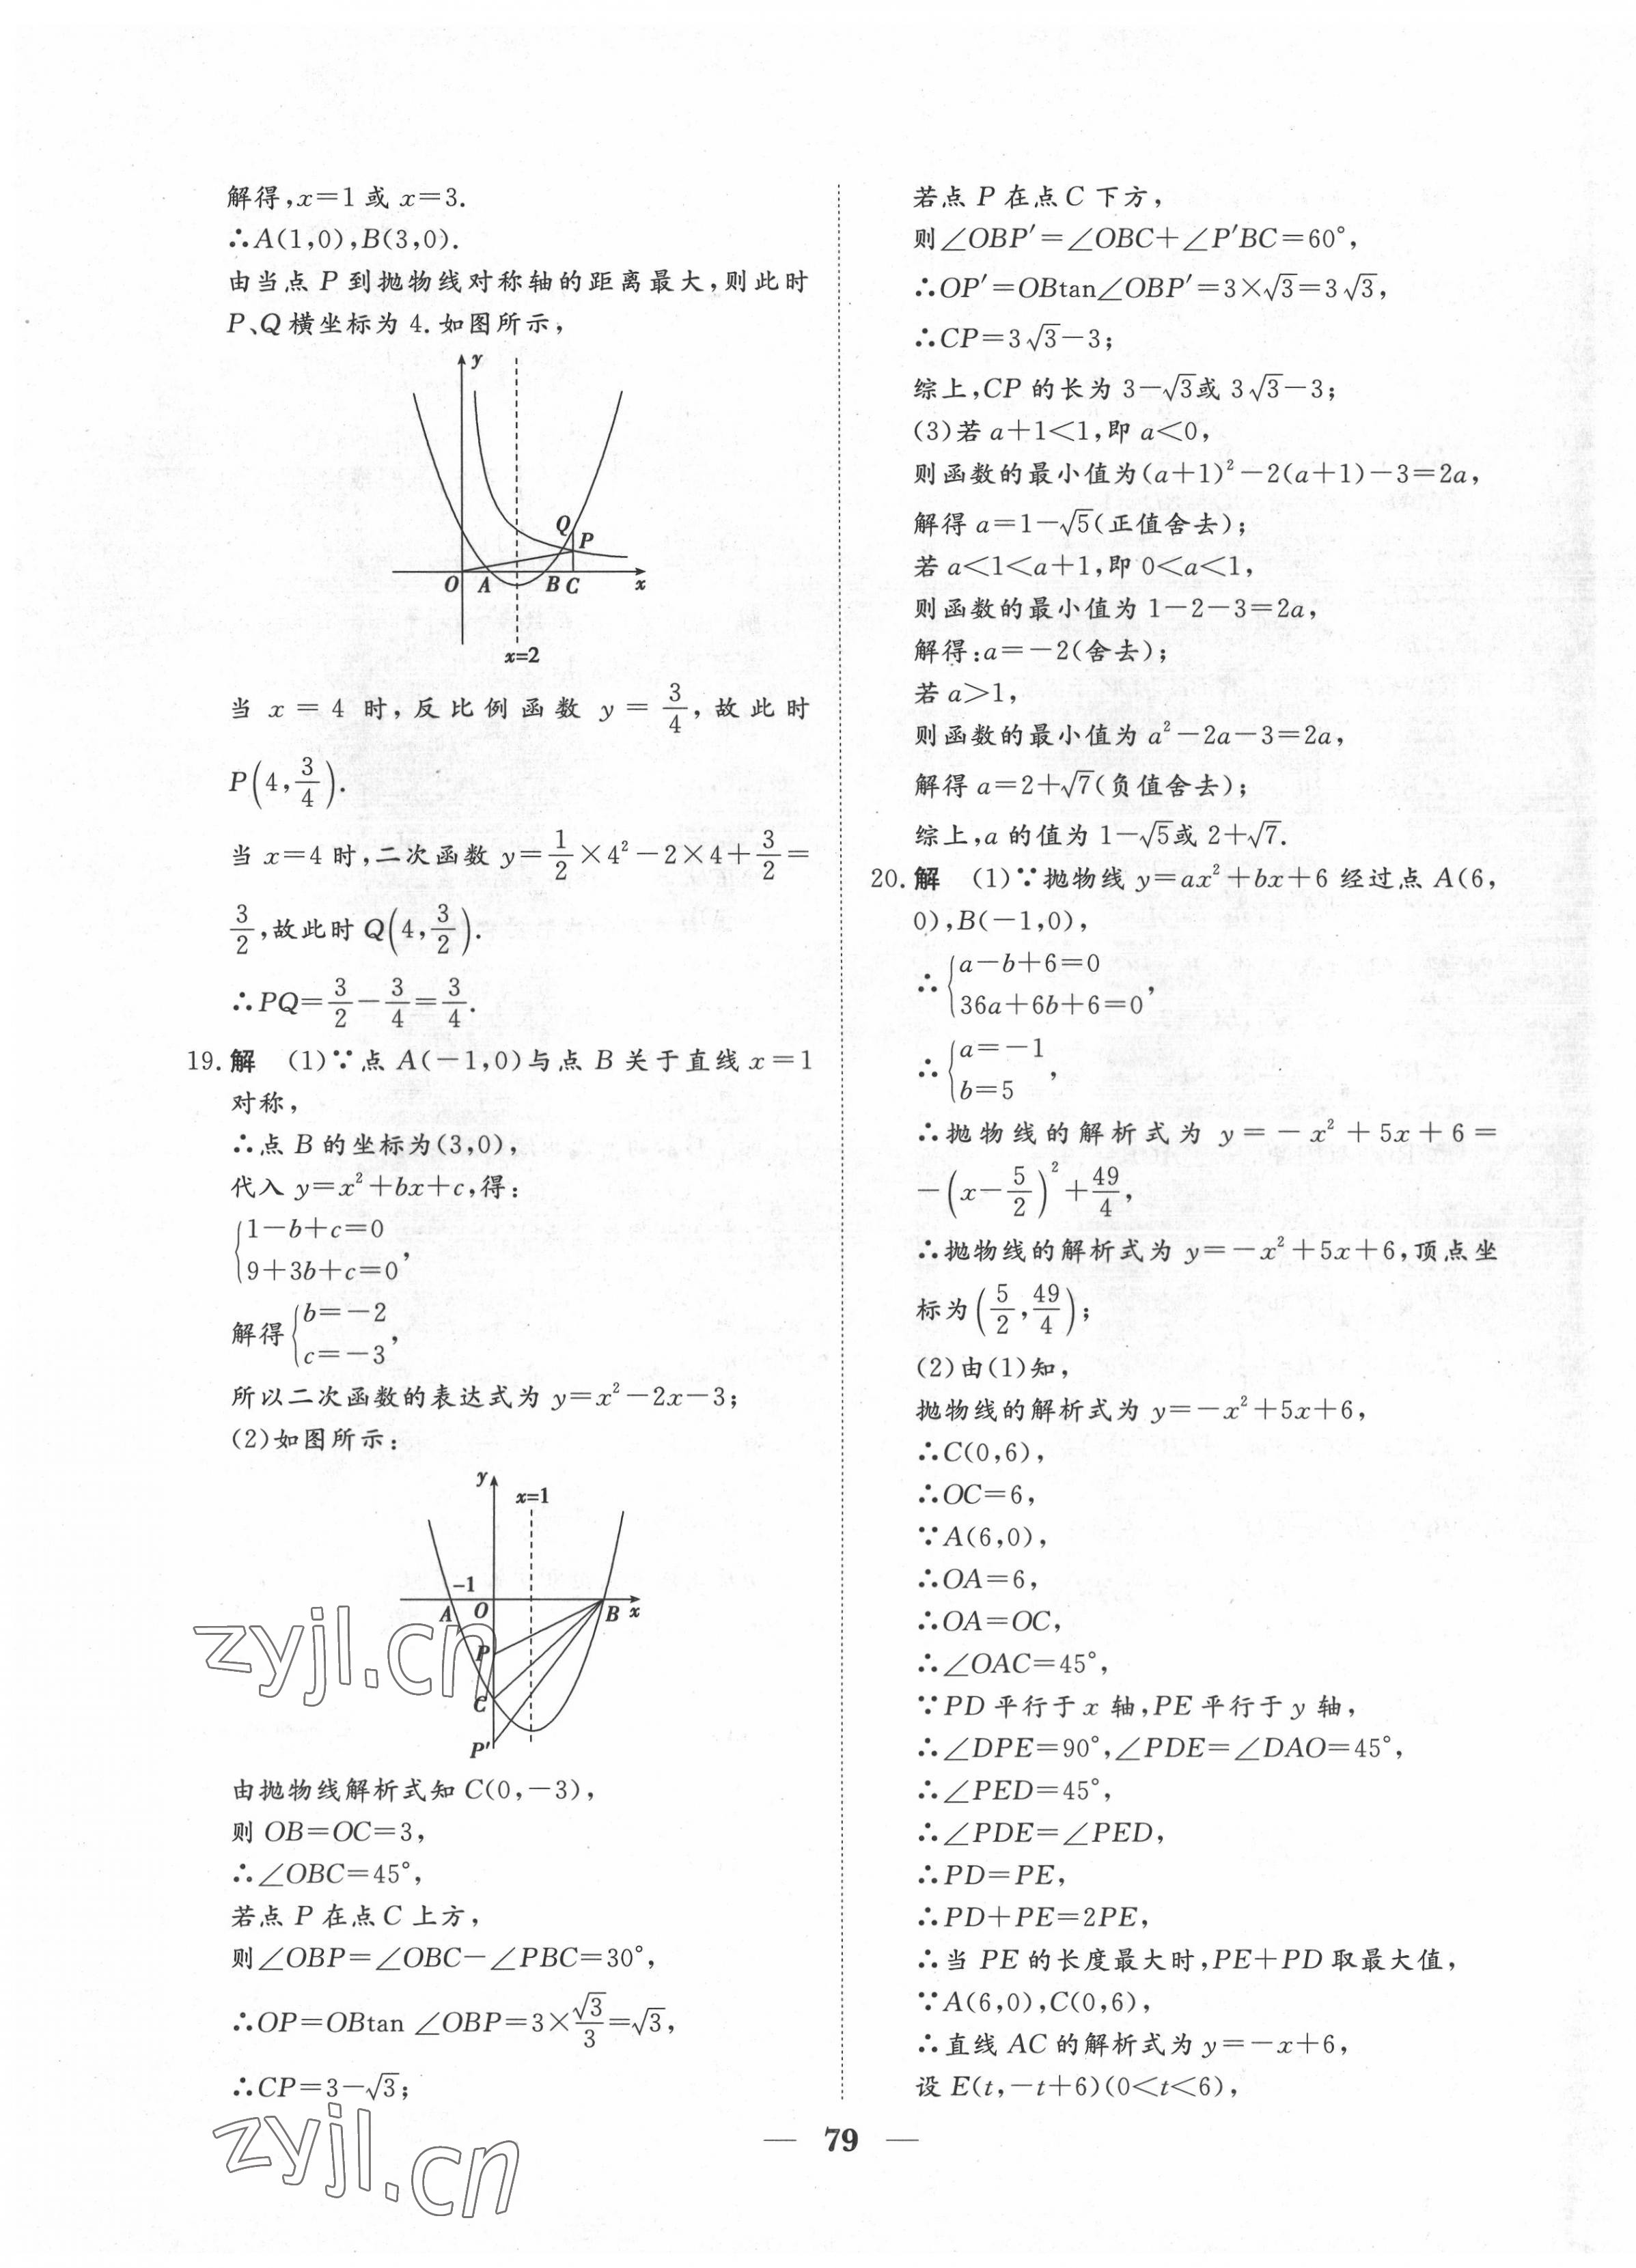 解得,x=1 或 x=3.
∴A(1,0),B(3,0).
由当点 P 到抛物线对称轴的距离最大,则此时
P、Q 横坐标为 4. 如图所示,
y
Q
P
O A B C x
x=2
当 x = 4 时, 反比例函数 y = 3/4, 故此时
P(4,3/4).
当 x=4 时,二次函数 y=1/2×4²-2×4+3/2=
3/2,故此时 Q(4,3/2).
∴PQ=3/2-3/4=3/4.
19. 解 (1)∵点 A(-1,0)与点 B 关于直线 x=1
对称,
∴点 B 的坐标为(3,0),
代入 y=x²+bx+c,得:
{1-b+c=0
9+3b+c=0,
解得{b=-2
c=-3,
所以二次函数的表达式为 y=x²-2x-3;
(2)如图所示:
y
x=1
-1
A O B x
P
C
P′
zyjl.cn
由抛物线解析式知 C(0,-3),
则 OB=OC=3,
∴∠OBC=45°,
若点 P 在点 C 上方,
则∠OBP=∠OBC-∠PBC=30°,
∴OP=OBtan ∠OBP=3×√3/3=√3,
∴CP=3-√3;
zyjl.cn
若点 P 在点 C 下方,
则∠OBP′=∠OBC+∠P′BC=60°,
∴OP′=OBtan∠OBP′=3×√3=3√3,
∴CP=3√3-3;
综上,CP 的长为 3-√3或 3√3-3;
(3)若 a+1<1,即 a<0,
则函数的最小值为(a+1)²-2(a+1)-3=2a,
解得 a=1-√5(正值舍去);
若 a<1<a+1,即 0<a<1,
则函数的最小值为 1-2-3=2a,
解得:a=-2(舍去);
若 a>1,
则函数的最小值为 a²-2a-3=2a,
解得 a=2+√7(负值舍去);
综上,a 的值为 1-√5或 2+√7.
20. 解 (1)∵抛物线 y=ax²+bx+6 经过点 A(6,
0),B(-1,0),
∴{a-b+6=0
36a+6b+6=0,
∴{a=-1
b=5,
∴抛物线的解析式为 y=-x²+5x+6=
-(x-5/2)²+49/4,
∴抛物线的解析式为 y=-x²+5x+6,顶点坐
标为(5/2,49/4);
(2)由(1)知,
抛物线的解析式为 y=-x²+5x+6,
∴C(0,6),
∴OC=6,
∵A(6,0),
∴OA=6,
∴OA=OC,
∴∠OAC=45°,
∵PD 平行于 x 轴,PE 平行于 y 轴,
∴∠DPE=90°,∠PDE=∠DAO=45°,
∴∠PED=45°,
∴∠PDE=∠PED,
∴PD=PE,
∴PD+PE=2PE,
∴当 PE 的长度最大时,PE+PD 取最大值,
∵A(6,0),C(0,6),
∴直线 AC 的解析式为 y=-x+6,
设 E(t,-t+6)(0<t<6),
— 79 —